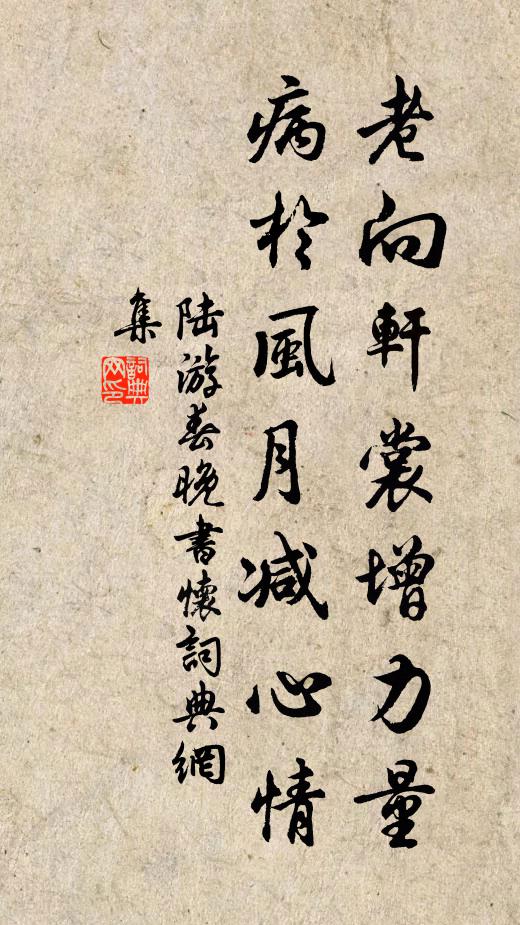 老向軒裳增力量
病於風月減心情
陆游春晚書懷詞典網
集
詞典网印